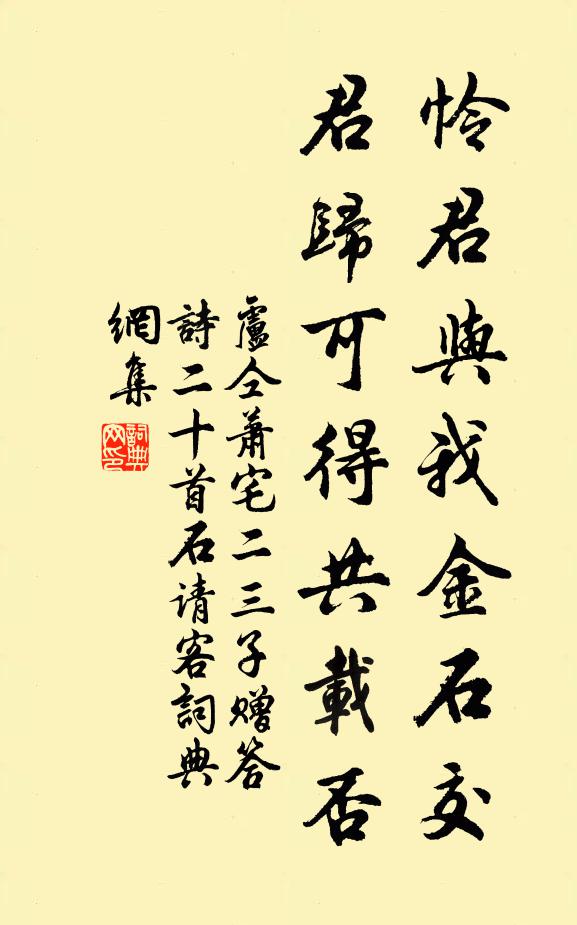 怜君與我金石交
君歸可得共載否
盧仝蕭宅二三子赠答
詩二十首石请客詞典
網集
詞典网印